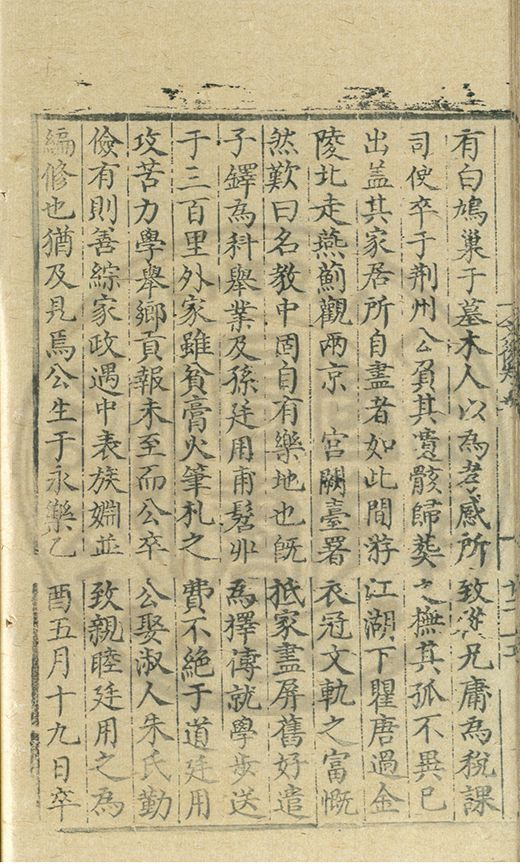 有白鳩巢于墓木人以為孝感所致從兄庸為稅課
司使卒于荆州公負其寬骸歸葬之撫其孤不異已
出盖其家居所自盡者如此間游江湖下瞿唐過金
陵北走燕薊觀兩京 宮闕臺署衣冠文軌之富慨
然歎曰名教中固自有樂地也旣抵家盡屏舊好遣
子鐸為科舉業及孫廷用甫髫丱為擇傳就學步送
于三百里外家雖貧膏火筆札之費不絕于道廷用
攻苦力學舉鄉貢報未至而公卒公娶淑人朱氏勤
儉有則善綜家政遇中表族婣並致親睦廷用之為
編修也猶及見焉公生于永樂乙酉五月十九日卒